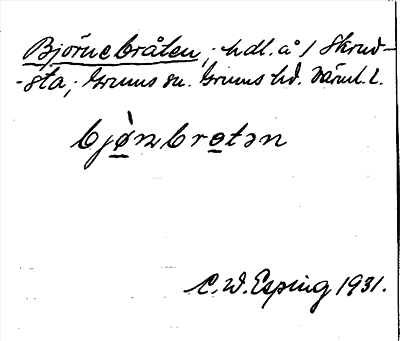 Björnebråten, hdl. å 1 Skruv-
-sta, Grums sn. Grums hd. Värml. l.
bjø̀nbrotən
C. W. Esping 1931.